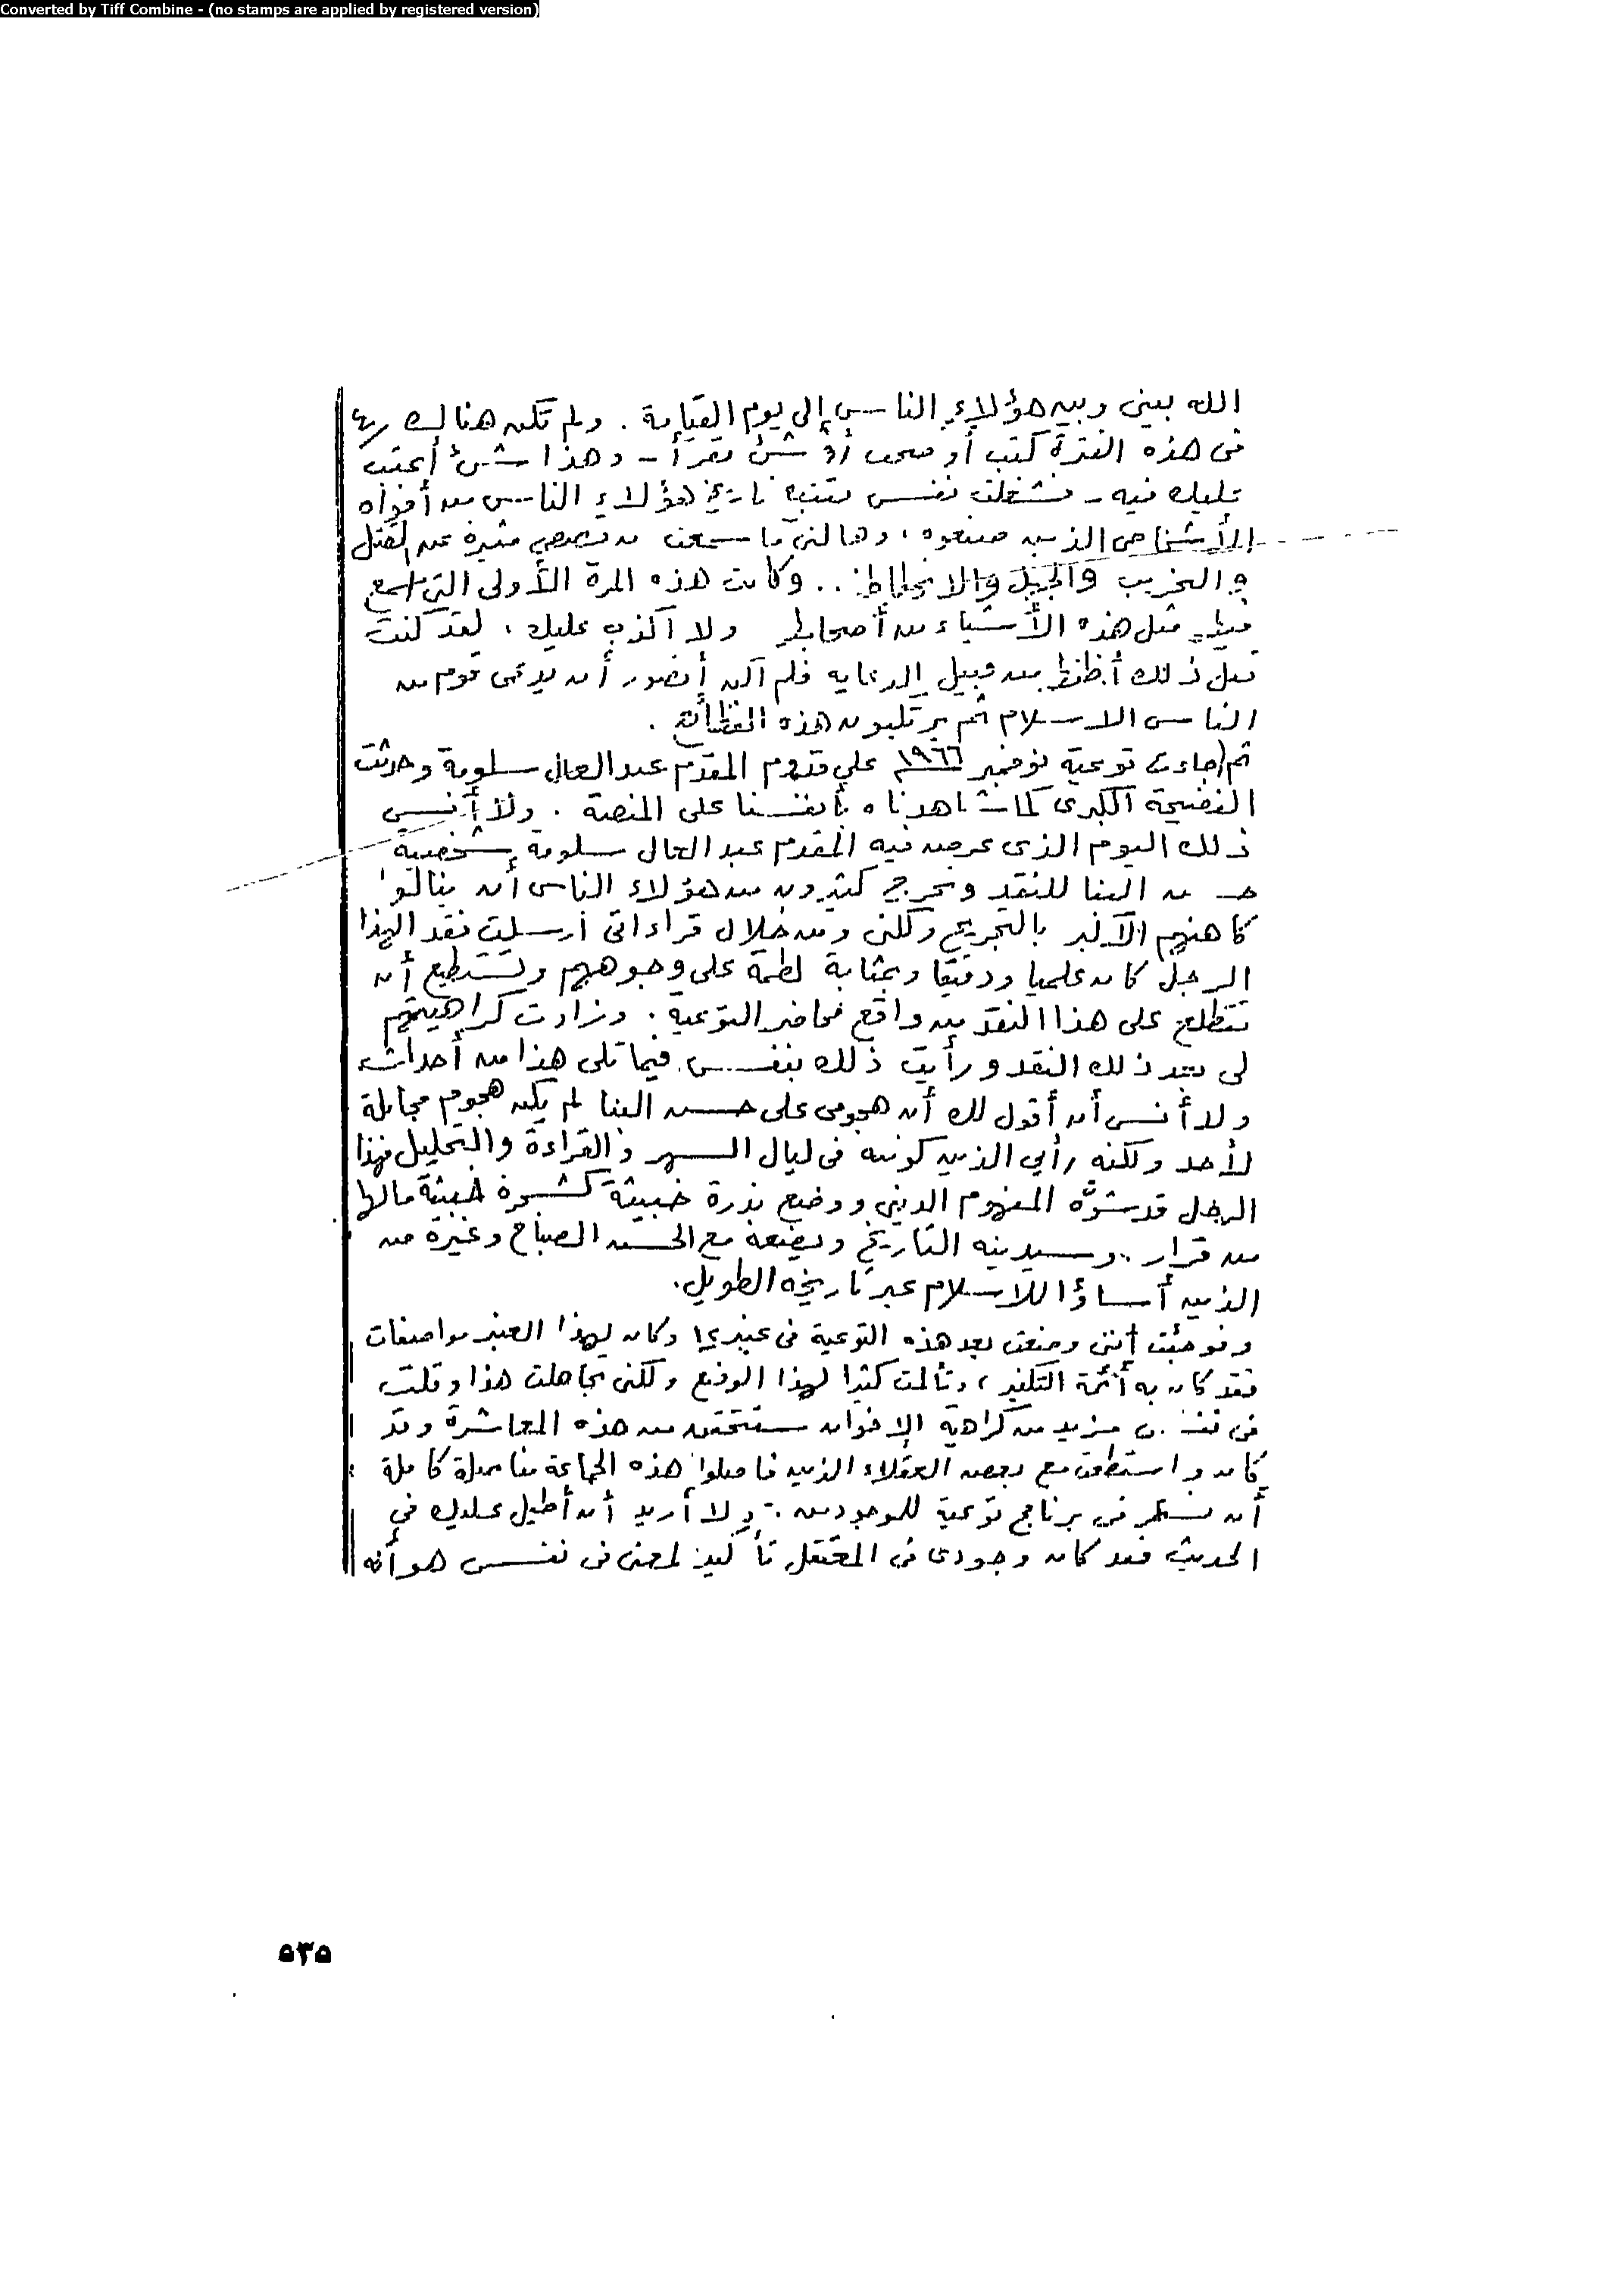 Converted by Tiff Combine - (no stamps are applied by registered version)
الله بينى وبين هؤلاء الناس إلى يوم القيامة . ولم تكن هناك
فى هذه الفترة كتب أو صحف أو شئ يقرأ - وهذا شئ أعتب
عليك فيه - فشغلت نفسى بتتبع تاريخ هؤلاء الناس من أفواه
الأشخاص الذين صنعوه ، وهالنى ما سمعت من قصص مثيرة عن القتل
والتخريب والجهل والانحطاط .. وكانت هذه المرة الأولى التى أسمع
فيها مثل هذه الأشياء من أصحابها ولا أكذب عليك ، لقد كنت
قبل ذلك أظنها من قبيل الدعاية فلم أكن أتصور أن يدعى قوم من
الناس الاسلام ثم يرتكبون هذه الفظائع .
ثم جاءت توعية نوفمبر ١٩٦٦ على قدوم المقدم عبد العال سلومة وحدثت
الفضيحة الكبرى كما شاهدناه بأنفسنا على المنصة . ولا أنسى
ذلك اليوم الذى عرض فيه المقدم عبد العال سلومة شخصية
حسن البنا للنقد وتحرج كثيرون من هؤلاء الناس أن ينالوا
كاهنهم الأكبر بالتجريح ولكنى ومن خلال قراءاتى أرسلت نقد لهذا
الرجل كان علميا ودقيقا وبمثابة لطمة على وجوههم وتستطيع أن
تتطلع على هذا النقد من واقع محاضر التوعية . وزادت كراهيتهم
لى بعد ذلك النقد ورأيت ذلك بنفسى فيما تلى هذا من أحداث
ولا أنسى أن أقول لك أن هجومى على حسن البنا لم يكن هجوم مجاملة
لأحد ولكنه رأيى الذى كونته فى ليال السهر والقراءة والتحليل فهذا
الرجل قد شوّه المفهوم الدينى ووضع بذرة خبيثة كشجرة خبيثة مالها
من قرار .. وسيدينه التاريخ ويضعه مع الحسن الصباح وغيره من
الذين أساؤا للاسلام عبر تاريخه الطويل .
وفوجئت أننى وضعت بعد هذه التوعية فى عنبر وكان لهذا العنبر مواصفات
فقد كان به أئمة التكفير ، وتألمت كثيرا لهذا الوضع ولكنى تجاهلت هذا وقلت
فى نفسى مزيد من كراهية الإخوان ستتحقق من هذه المعاشرة وقد
كان واستطعت مع بعض العقلاء الذين فاصلوا هذه الجماعة مفاصلة كاملة
أن نستمر فى برنامج توعية للموجودين . ولا أريد أن أطيل عليك فى
الحديث فقد كان وجودى فى المعتقل تأكيد لمعنى فى نفسى هو أنه
٥٣٥